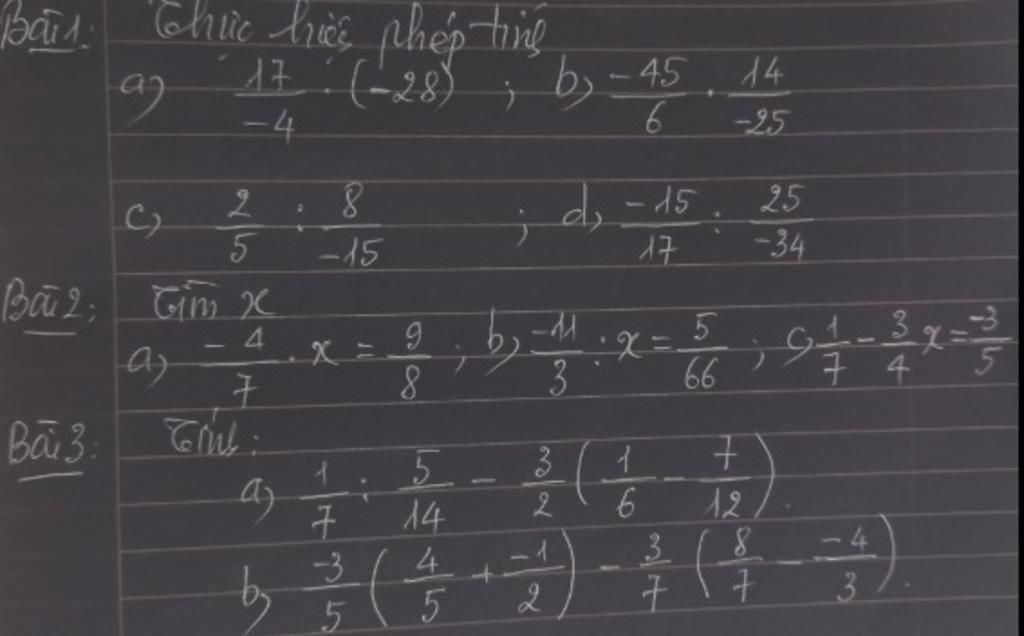 Bài 1: Thực hiện phép tính
a) 17/-4 . (-28) ; b) -45/6 . 14/-25
c) 2/5 : 8/-15 ; d) -15/17 : 25/-34
Bài 2: Tìm x
a) -4/7 . x = 9/8 ; b) -11/3 : x = 5/66 ; c) 1/7 - 3/4 x = -3/5
Bài 3: Tính:
a) 1/7 : 5/14 - 3/2 (1/6 - 7/12).
b) -3/5 (4/5 + -1/2) - 3/7 (8/7 - -4/3).